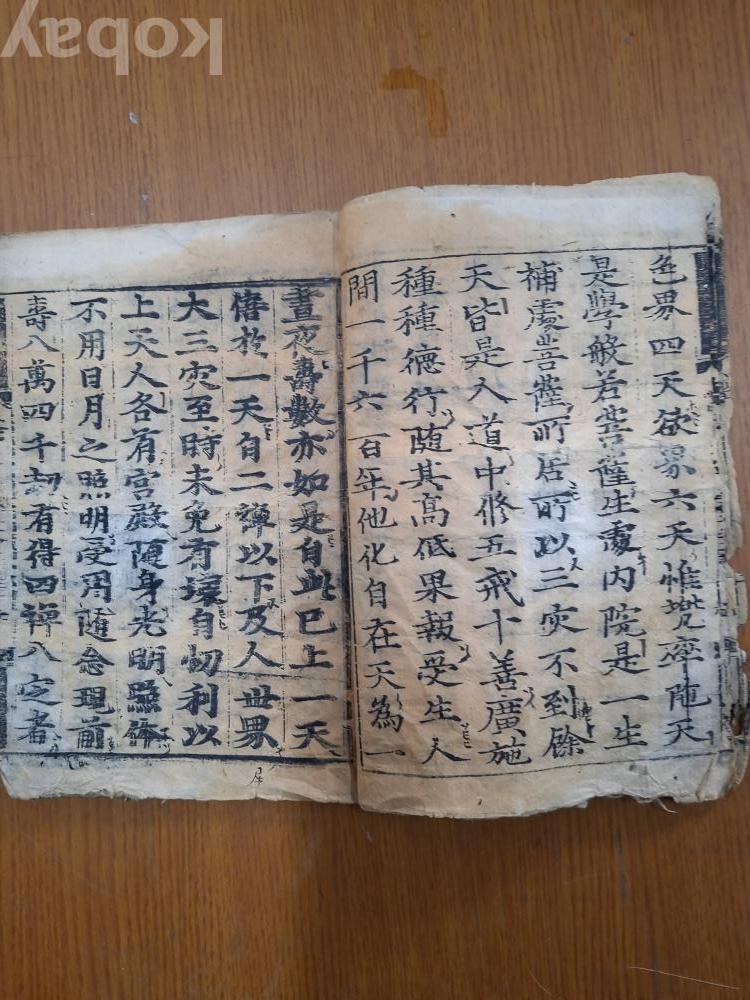 色界四天欲界六天惟兜率陁天
是學般若菩薩生處內院是一生
補處菩薩所居所以三灾不到餘
天皆是人道中修五戒十善廣施
種種德行随其髙低果報受生人
間一千六百年他化自在天為一
晝夜壽數亦如是自此已上一天
倍於一天自二禪以下及人世界
大三灾至時未免有壞自忉利以
上天人各有宮殿随身光明照
不用日月之照明受用随念現前
壽八萬四千劫有得四禪八定者
kobay